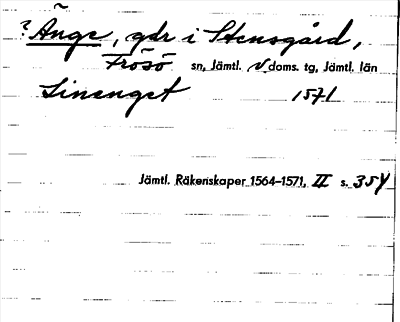 ? Änge, gdr i Stensgård,
Frösö sn, Jämtl. V doms. tg, Jämtl. län
Linenget 1571
Jämtl. Räkenskaper 1564–1571, II s. 354